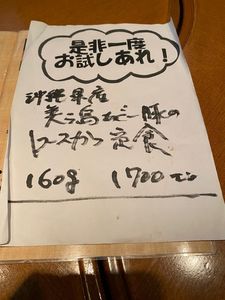 是非一度
お試しあれ!
沖縄県産
美ら島あぐー豚の
ロースカツ定食
160g 1700エン